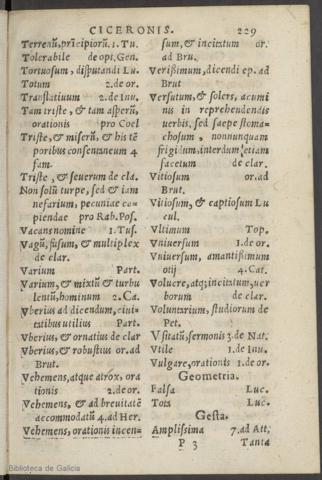 CICERONIS. 229
Terrenũ, prĩcipiorũ. 1. Tu.
Tolerabile de opi. Gen.
Tortuosum, disputandi Lu.
Totum 2. de or.
Translatiuum 2. de Inu.
Tam triste, & tam asperũ,
orationis pro Coel
Triste, & miserũ, & his tẽ
poribus consentaneum 4
fam.
Triste, & seuerum de cla.
Non solũ turpe, sed & iam
nefarium, pecuniae ca-
piendae pro Rab. Pos.
Vacans nomine 1. Tus.
Vagũ, fusum, & multiplex
de clar.
Varium Part.
Varium, & mixtũ & turbu
lentũ, hominum 2. Ca.
Vberius ad dicendum, ciui-
tatibus utilius Part.
Vberius, & ornatius de clar
Vberius, & robustius or. ad
Brut.
Vehemens, atque atrox, ora
tionis 2. de or.
Vehemens, & ad breuitatẽ
accommodatũ 4. ad Her.
Vehemens, orationis incen-
sum, & incitatum or.
ad Bru.
Verißimum, dicendi ep. ad
Brut
Versutum, & solers, acumi
nis in reprehendendis
uerbis, sed saepe stoma-
chosum, nonnunquam
frigidum, interdum etiam
facetum de clar.
Vitiosum or. ad
Brut.
Vitiosum, & captiosum Lu
cul.
Vltimum Top.
Vniuersum 1. de or.
Vniuersum, amantißimum
otij 4. Cat.
Volucre, atq; incitatum, uer
borum de clar.
Voluntarium, studiorum de
Pet.
Vsitatũ, sermonis 3. de Nat.
Vtile 1. de Inu.
Vulgare, orationis 1. de or.
Geometria.
Falsa Luc.
Tota Luc.
Gesta.
Amplißima 7. ad Att.
P 3 Tanta
Biblioteca de Galicia